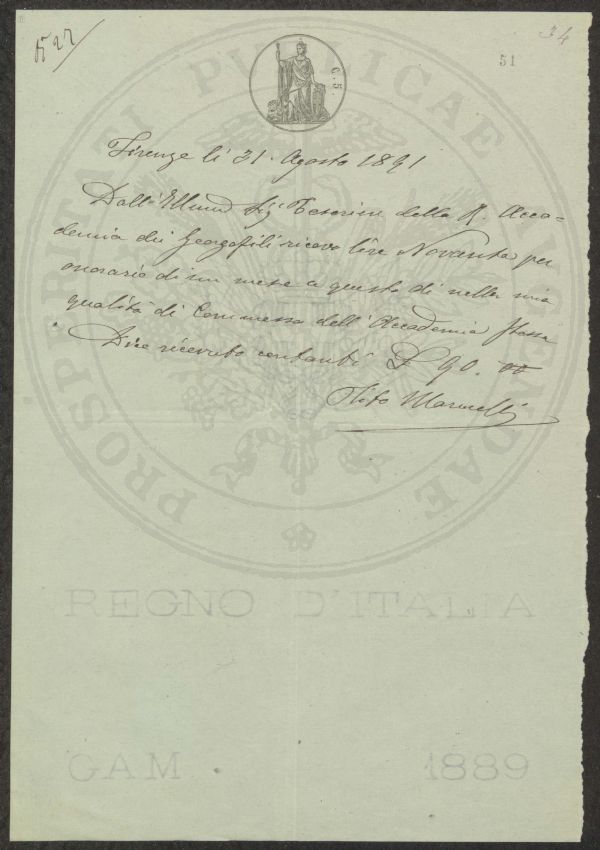 527
34
51
C. 5.
Firenze li 31. Agosto 1891
Dall'Illmo Sig Tesoriere della R. Acca-
demia dei Georgofili ricevo lire Novanta per
onorario di un mese a questo dì nella mia
qualità di Commesso dell'Accademia stessa
Dico ricevuto contanti £ 90. 00
Tito Marucelli
PROSPERITATI PUBLICAE AUGENDAE
REGNO D'ITALIA
GAM 1889